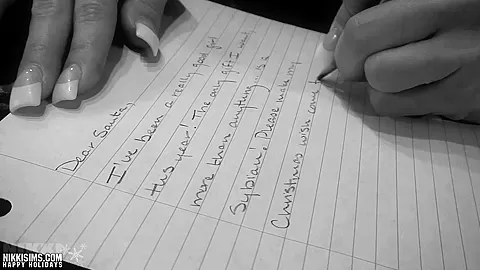 Dear Santa,
I've been a really good girl
this year! The only gift I want
more than anything is a
Sybian! Please make my
Christmas wish come
NIKKISIMS.COM
HAPPY HOLIDAYS